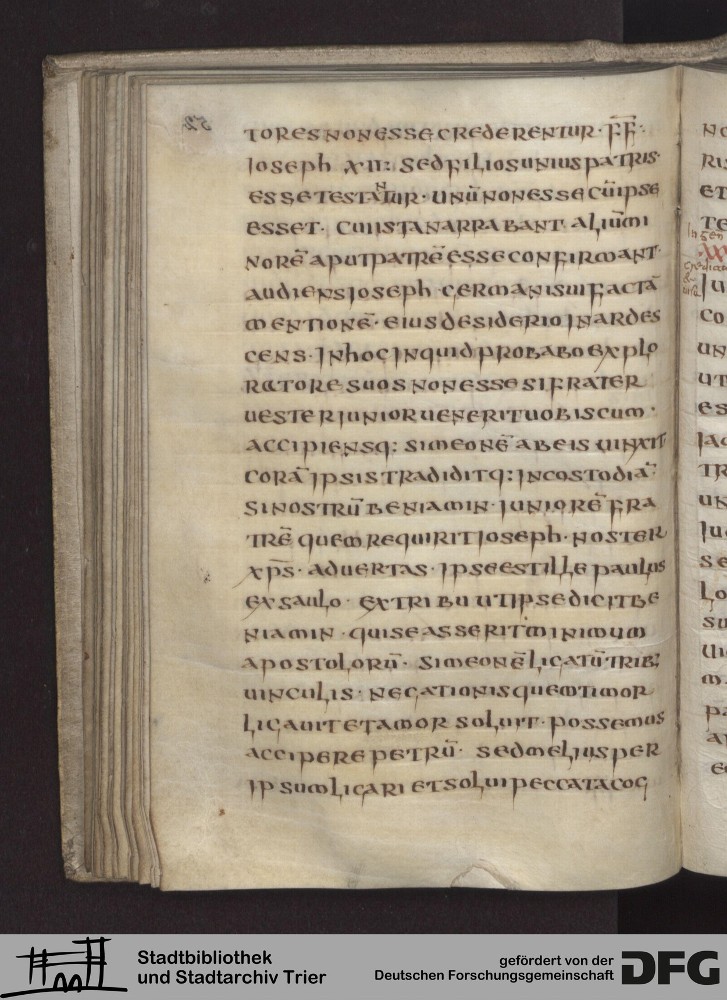 52
TORES NON ESSE CREDERENTUR · F̅F̅ ·
IOSEPH XII: SED FILIOS UNIUS PATRIS
ESSE TESTANTUR · UNŪ NON ESSE CŪ IPSE
ESSET · CUI ISTA NARRABANT ALIŪ MI
NORĒ APUT PATRĒ ESSE CONFIRMANT ·
AUDIENS IOSEPH GERMANI SUI FACTĀ
MENTIONĒ · EIUS DESIDERIO INARDES
CENS · IN HOC INQUID PROBABO EXPLO
RATORES UOS NON ESSE SI FRATER
UESTER IUNIOR UENERIT UOBISCUM ·
ACCIPIENSQ: SIMEONĒ AB EIS UINXIT
CORĀ IPSIS TRADIDITQ: IN COSTODIĀ:
SI NOSTRŪ BENIAMIN · IUNIORĒ FRA
TRĒ QUEM REQUIRIT IOSEPH · NOSTER
XP̅S · ADUERTAS · IPSE EST ILLE PAULUS
EX SAULO · EX TRIBU UT IPSE DICIT BE
NIAMIN · QUI SE ASSERIT MINIMUM
APOSTOLORŪ · SIMEONĒ LIGATŪ TRIB:
UINCULIS · NEGATIONIS QUEM TIMOR
LIGAUIT ET AMOR SOLUIT · POSSEMUS
ACCIPERE PETRŪ · SED MELIUS PER
IPSUM LIGARI ET SOLUI PECCATA COG
NO
RIS
ET
TE
IU
CO
UN
UT
ES
IAC
TR
UN
IU
SE
LO
SU
UI
M
PA
A
E
Stadtbibliothek
und Stadtarchiv Trier
gefördert von der
Deutschen Forschungsgemeinschaft
DFG